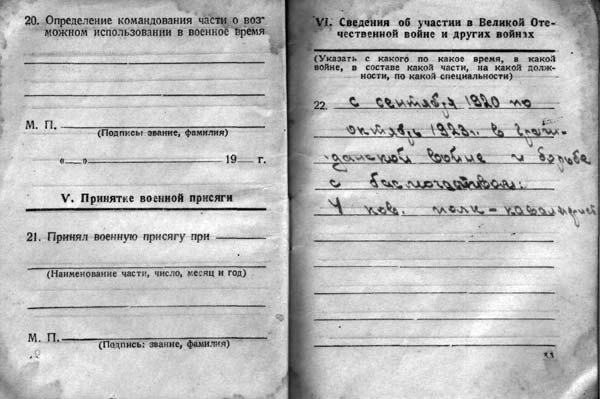 20. Определение командования части о воз-
можном использовании в военное время
М. П.
(Подпись: звание, фамилия)
«—» 19— г.
V. Принятие военной присяги
21. Принял военную присягу при
(Наименование части, число, месяц и год)
М. П.
(Подпись: звание, фамилия)
VI. Сведения об участии в Великой Оте-
чественной войне и других войнах
(Указать с какого по какое время, в какой
войне, в составе какой части, на какой долж-
ности, по какой специальности)
22. с сентября 1920 по
октябрь 1923 г. в граж-
данской войне и борьбе
с басмачеством.
4 кав. полк – кавалерист
11